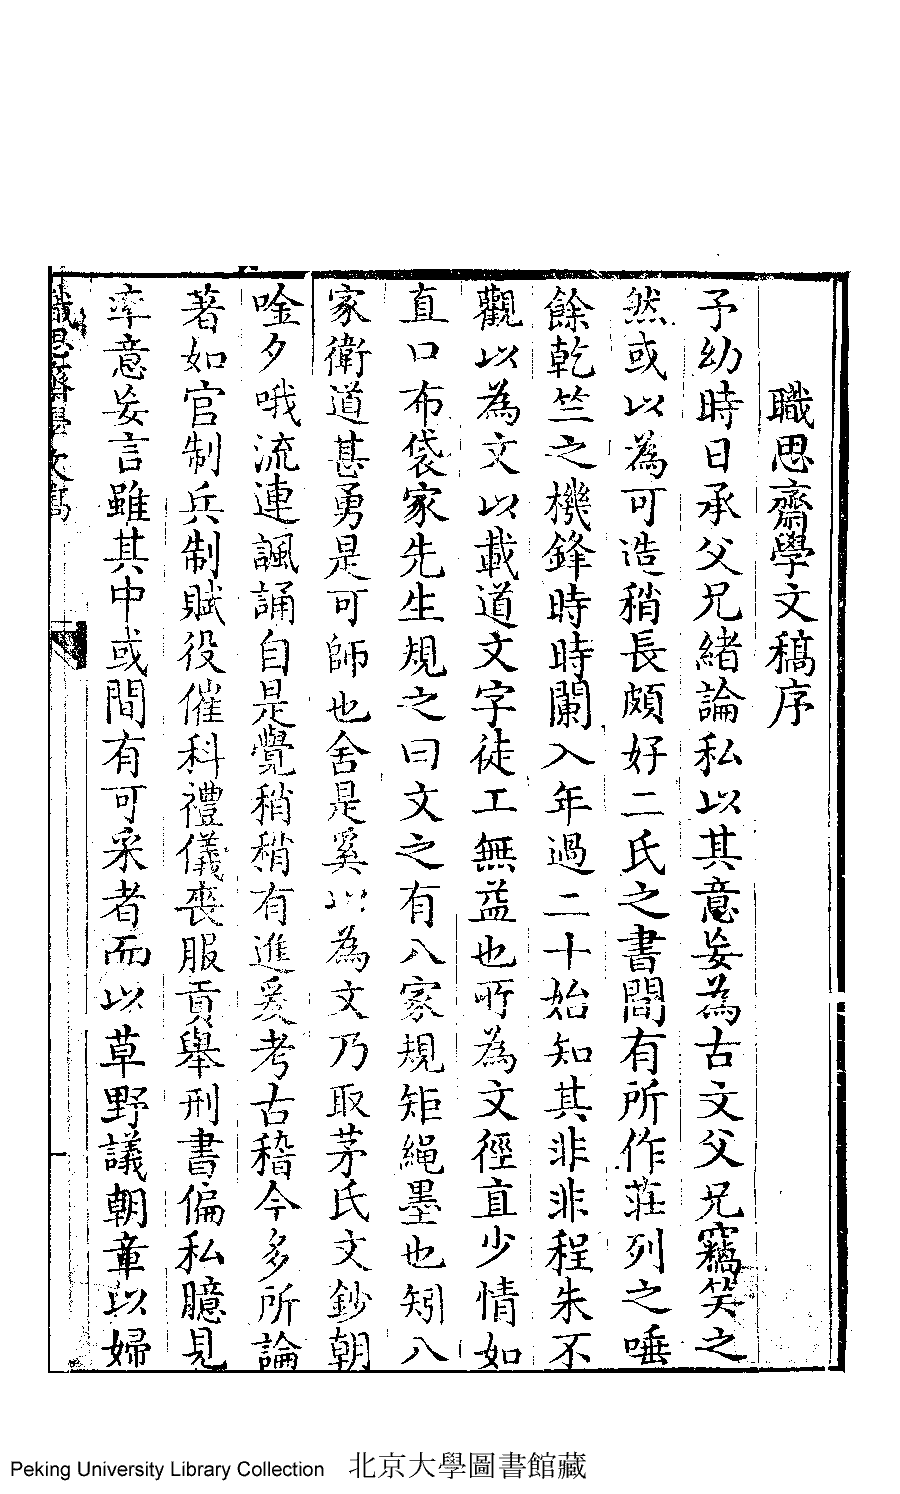 職思齋學文稿序
予幼時日承父兄緒論私以其意妄為古文父兄竊笑之
然或以為可造稍長頗好二氏之書間有所作莊列之唾
餘乾竺之機鋒時時闌入年過二十始知其非非程朱不
觀以為文以載道文字徒工無益也所為文徑直少情如
直口布袋家先生規之曰文之有八家規矩繩墨也矧八
家衛道甚勇是可師也舍是奚以為文乃取茅氏文鈔朝
唫夕哦流連諷誦自是覺稍稍有進爰考古稽今多所論
著如官制兵制賦役催科禮儀喪服貢舉刑書偏私臆見
率意妄言雖其中或間有可采者而以草野議朝章以婦
職思齋學文稿
一
Peking University Library Collection 北京大學圖書館藏